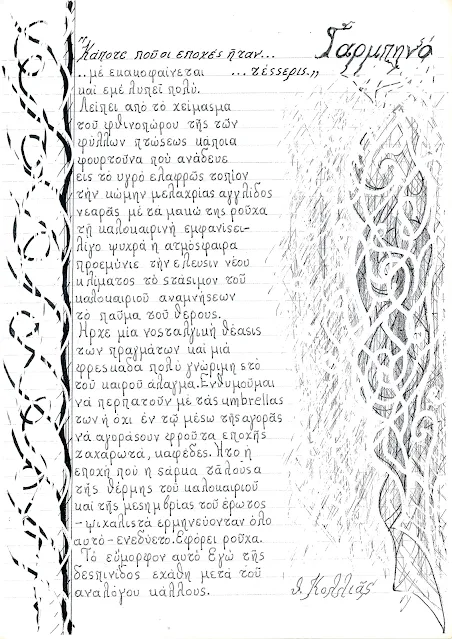 Γαρμπηνό
"Κάποτε ποῦ οι εποχές ἦταν...
..μέ εκακοφαίνεται ...τέσσερις,,
καί εμέ λυπεῖ πολύ.
Λείπει από τό χείμασμα
τοῦ φθινοπώρου τῆς τῶν
φύλλων πτώσεως κάποια
φουρτοῦνα ποῦ ανάδευε
εις τό υγρό ελαφρῶς τοπίον
τήν κώμην μελαχρίας αγγλίδος
νεαρᾶς μέ τά μακώ τῆς ροῦχα
τῇ καλοκαιρινῇ εμφανίσει-
λίγο ψυχρά ἡ ατμόσφαιρα
προεμύνιε τήν έλευσιν νέου
κλίματος τό στάσιμον τοῦ
καλοκαιριοῦ αναμνήσεων
τό παῦμα τοῦ θέρους.
Ἦρχε μία νοσταλγική θέασις
τῶν πραγμάτων καί μιά
φρεσκάδα πολύ γνώριμη στό
τοῦ καιροῦ άλαγμα. Ενθυμοῦμαι
νά περπατοῦν μέ τάς umbrellas
των ή όχι εν τῷ μέσω τῆς αγορᾶς
νά αγοράσουν φροῦτα εποχῆς
ζαχάρωτά, καφέδες. Ἦτο ἡ
εποχή πού η σάρκα τάλουσα
τῆς θέρμης τοῦ καλοκαιριοῦ
καί τῆς μεσημβρίας τοῦ έρωτος
- ψιχαλιστά ερμηνεύονταν όλο
αυτό - ενεδύετο. Εφόρει ροῦχα.
Τό εύμορφον αυτό Εγώ τῆς
δεσπινίδος εχάθη μετά τοῦ
αναλόγου κάλλους.
θ. Κολλιᾶς